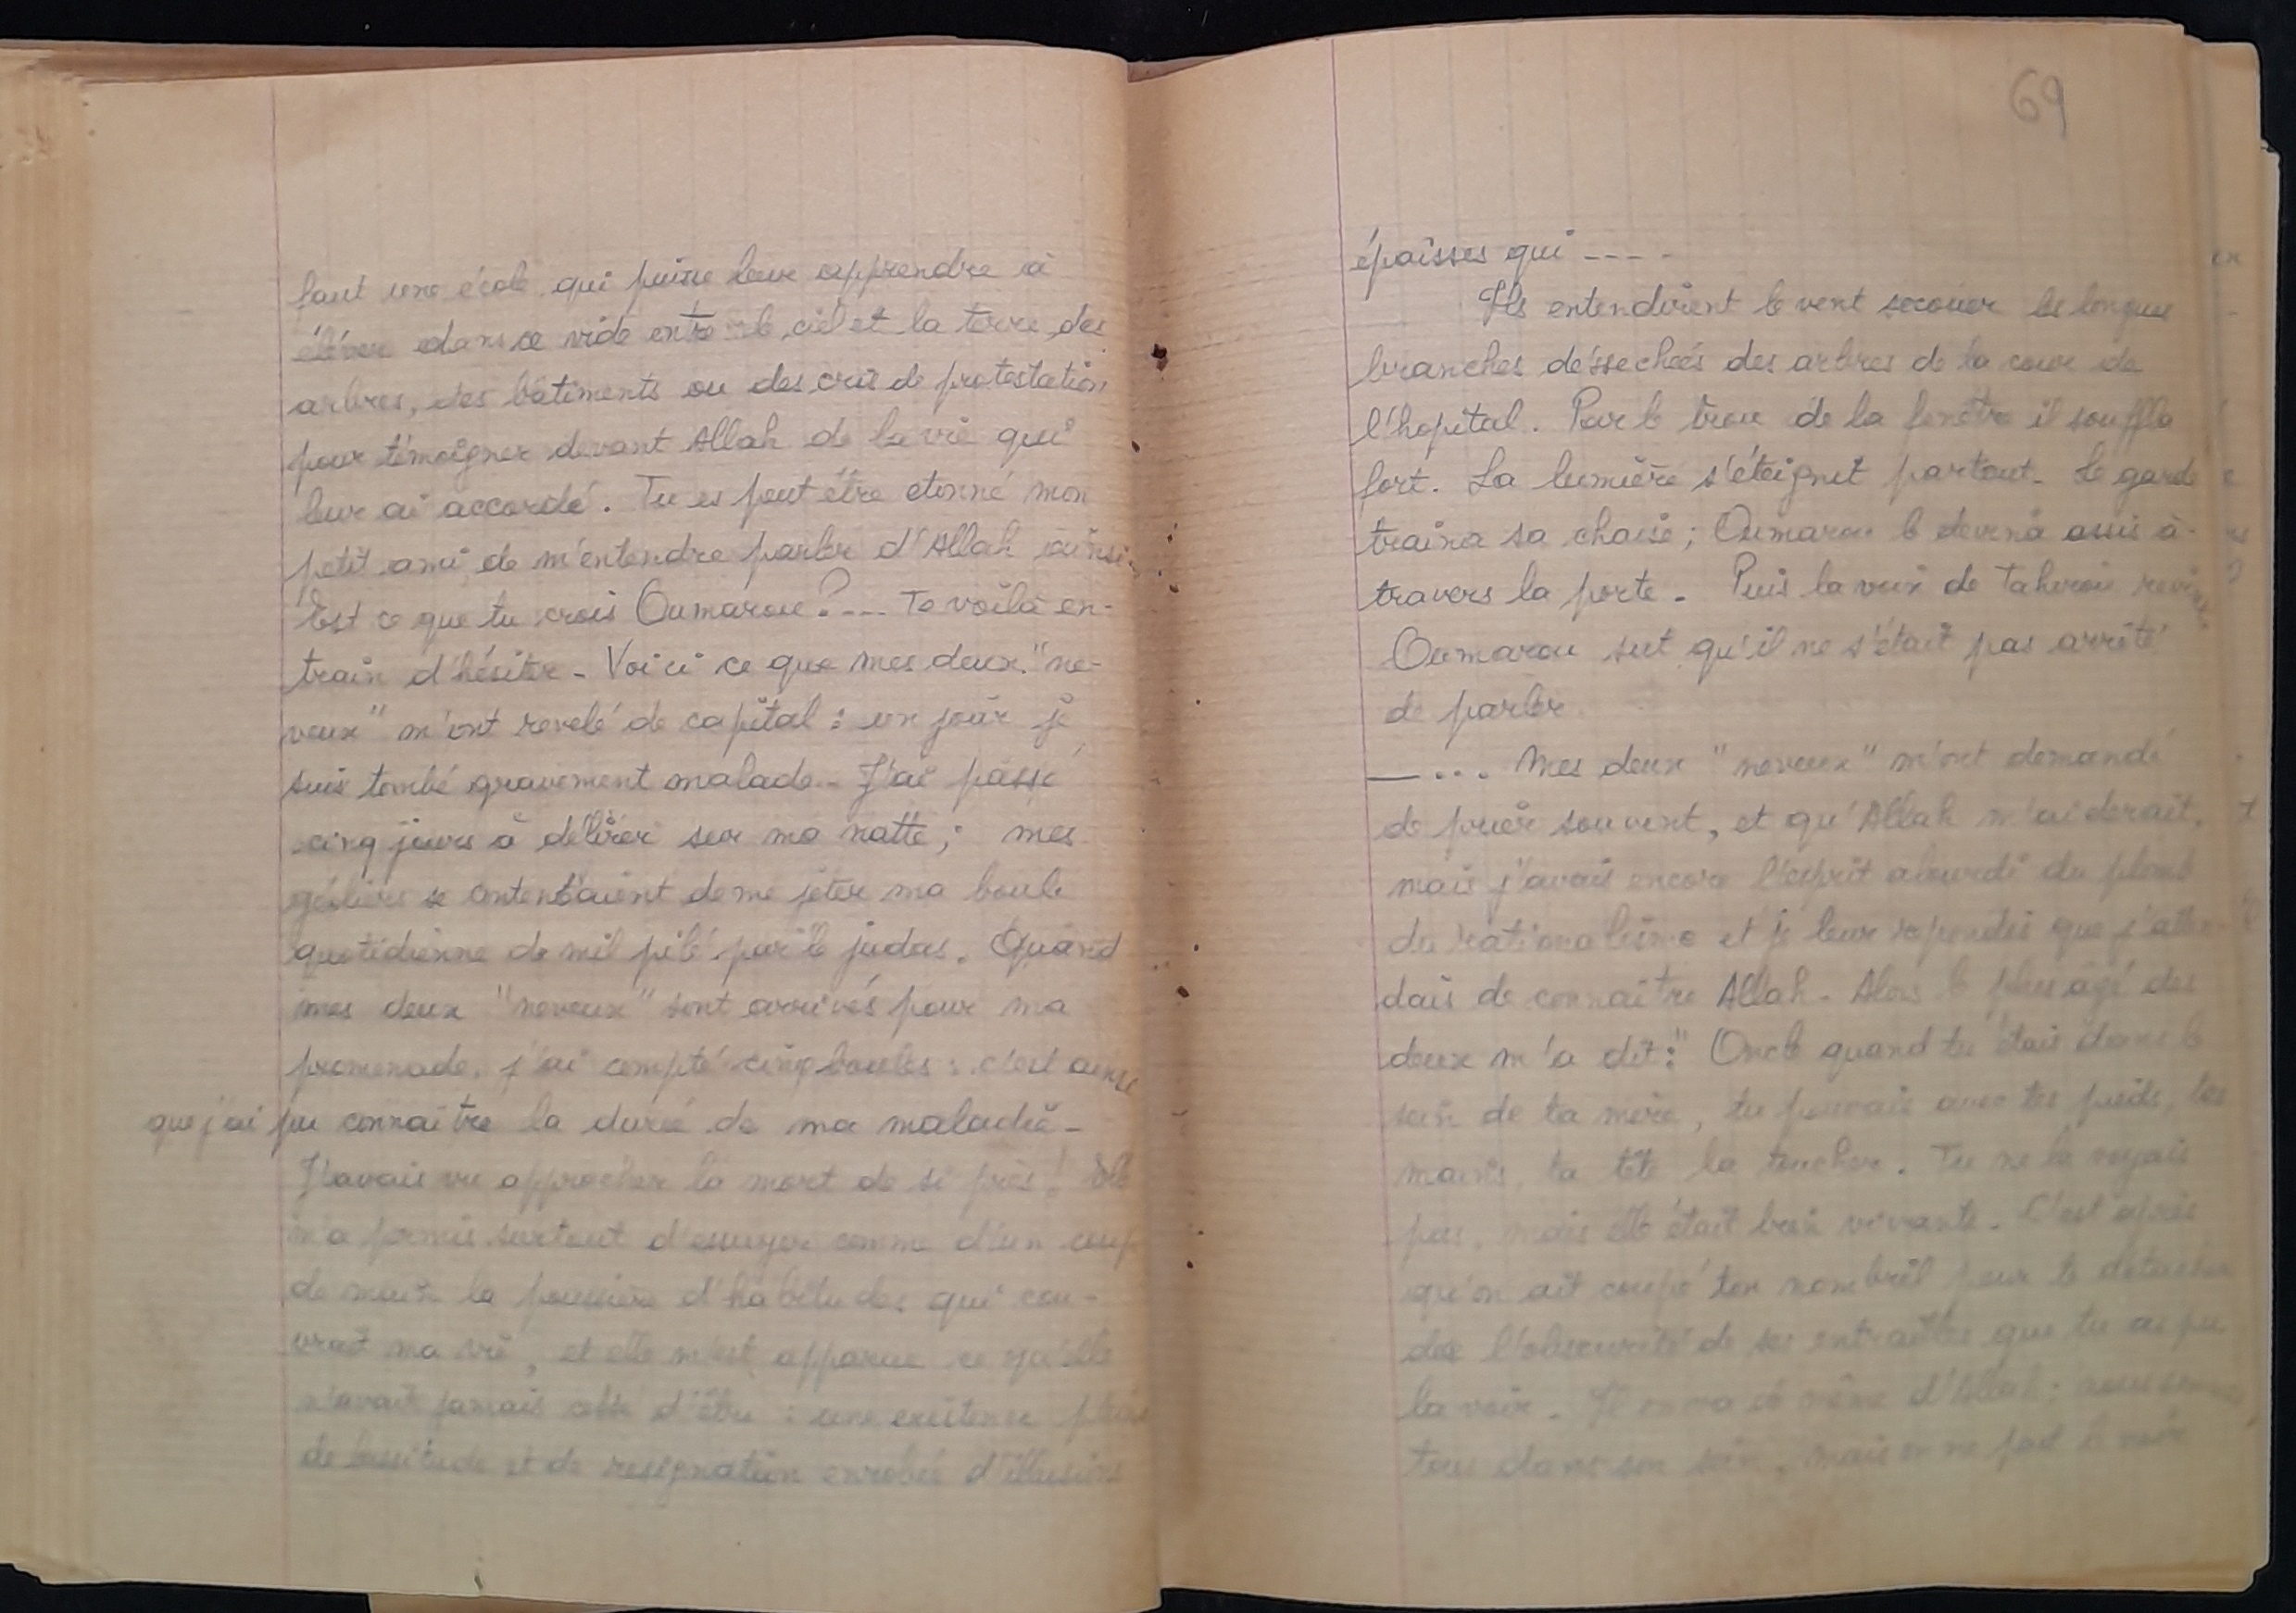 faut une école qui puisse leur apprendre à
élever dans ce vide entre le ciel et la terre des
arbres, des bâtiments ou des cris de protestation
pour témoigner devant Allah de la vie qui
leur ai accordé. Tu es peut être etonné mon
petit ami de m'entendre parler d'Allah ainsi
Est ce que tu crois Oumarou?--- Te voilà en-
train d'hésiter - Voici ce que mes deux "ne-
veux" m'ont revelé de capital : un jour je
suis tombé gravement malade - J'ai passé
cinq jours à délirer sur ma natte ; mes
geôliers se contentaient de me jeter ma boule
quotidienne de mil pilé par le judas. Quand
mes deux "neveux" sont arrivés pour ma
promenade, j'ai compté cinq boules : c'est ainsi
que j'ai pu connaître la durée de ma maladie -
J'avais vu approcher la mort de si près ! Elle
m'a permis surtout d'essuyer comme d'un coup
de main la poussière d'habitudes qui cou-
vrait ma vie, et elle m'est apparue ce qu'elle
n'avait jamais cessé d'être : une existence pleine
de lassitude et de resignation enrobée d'illusions
69
épaisses qui ----
Ils entendirent le vent secouer les longues
branches désséchées des arbres de la cour de
l'hopital. Par le trou de la fenêtre il souffla
fort. La lumière s'éteignit partout. Le garde
traina sa chaise ; Oumarou le devina assis à-
travers la porte - Puis la voix de Tahirou revint.
Oumarou sut qu'il ne s'était pas arrêté
de parler
— ... Mes deux "neveux" m'ont demandé
de prier souvent, et qu'Allah m'aiderait,
mais j'avais encore l'esprit alourdi du plomb
du rationalisme et je leur repondis que j'atten-
dais de connaître Allah - Alors le plus âgé des
deux m'a dit : " Oncle quand tu étais dans le
sein de ta mère, tu pouvais avec tes pieds, tes
mains, ta tête la toucher. Tu ne la voyais
pas, mais elle était bien vivante - C'est après
qu'on ait coupé ton nombril pour te détacher
de l'obscurité de ses entrailles que tu as pu
la voir. Il en va de même d'Allah ; nous sommes
tous dans son sein, mais on ne peut le voir